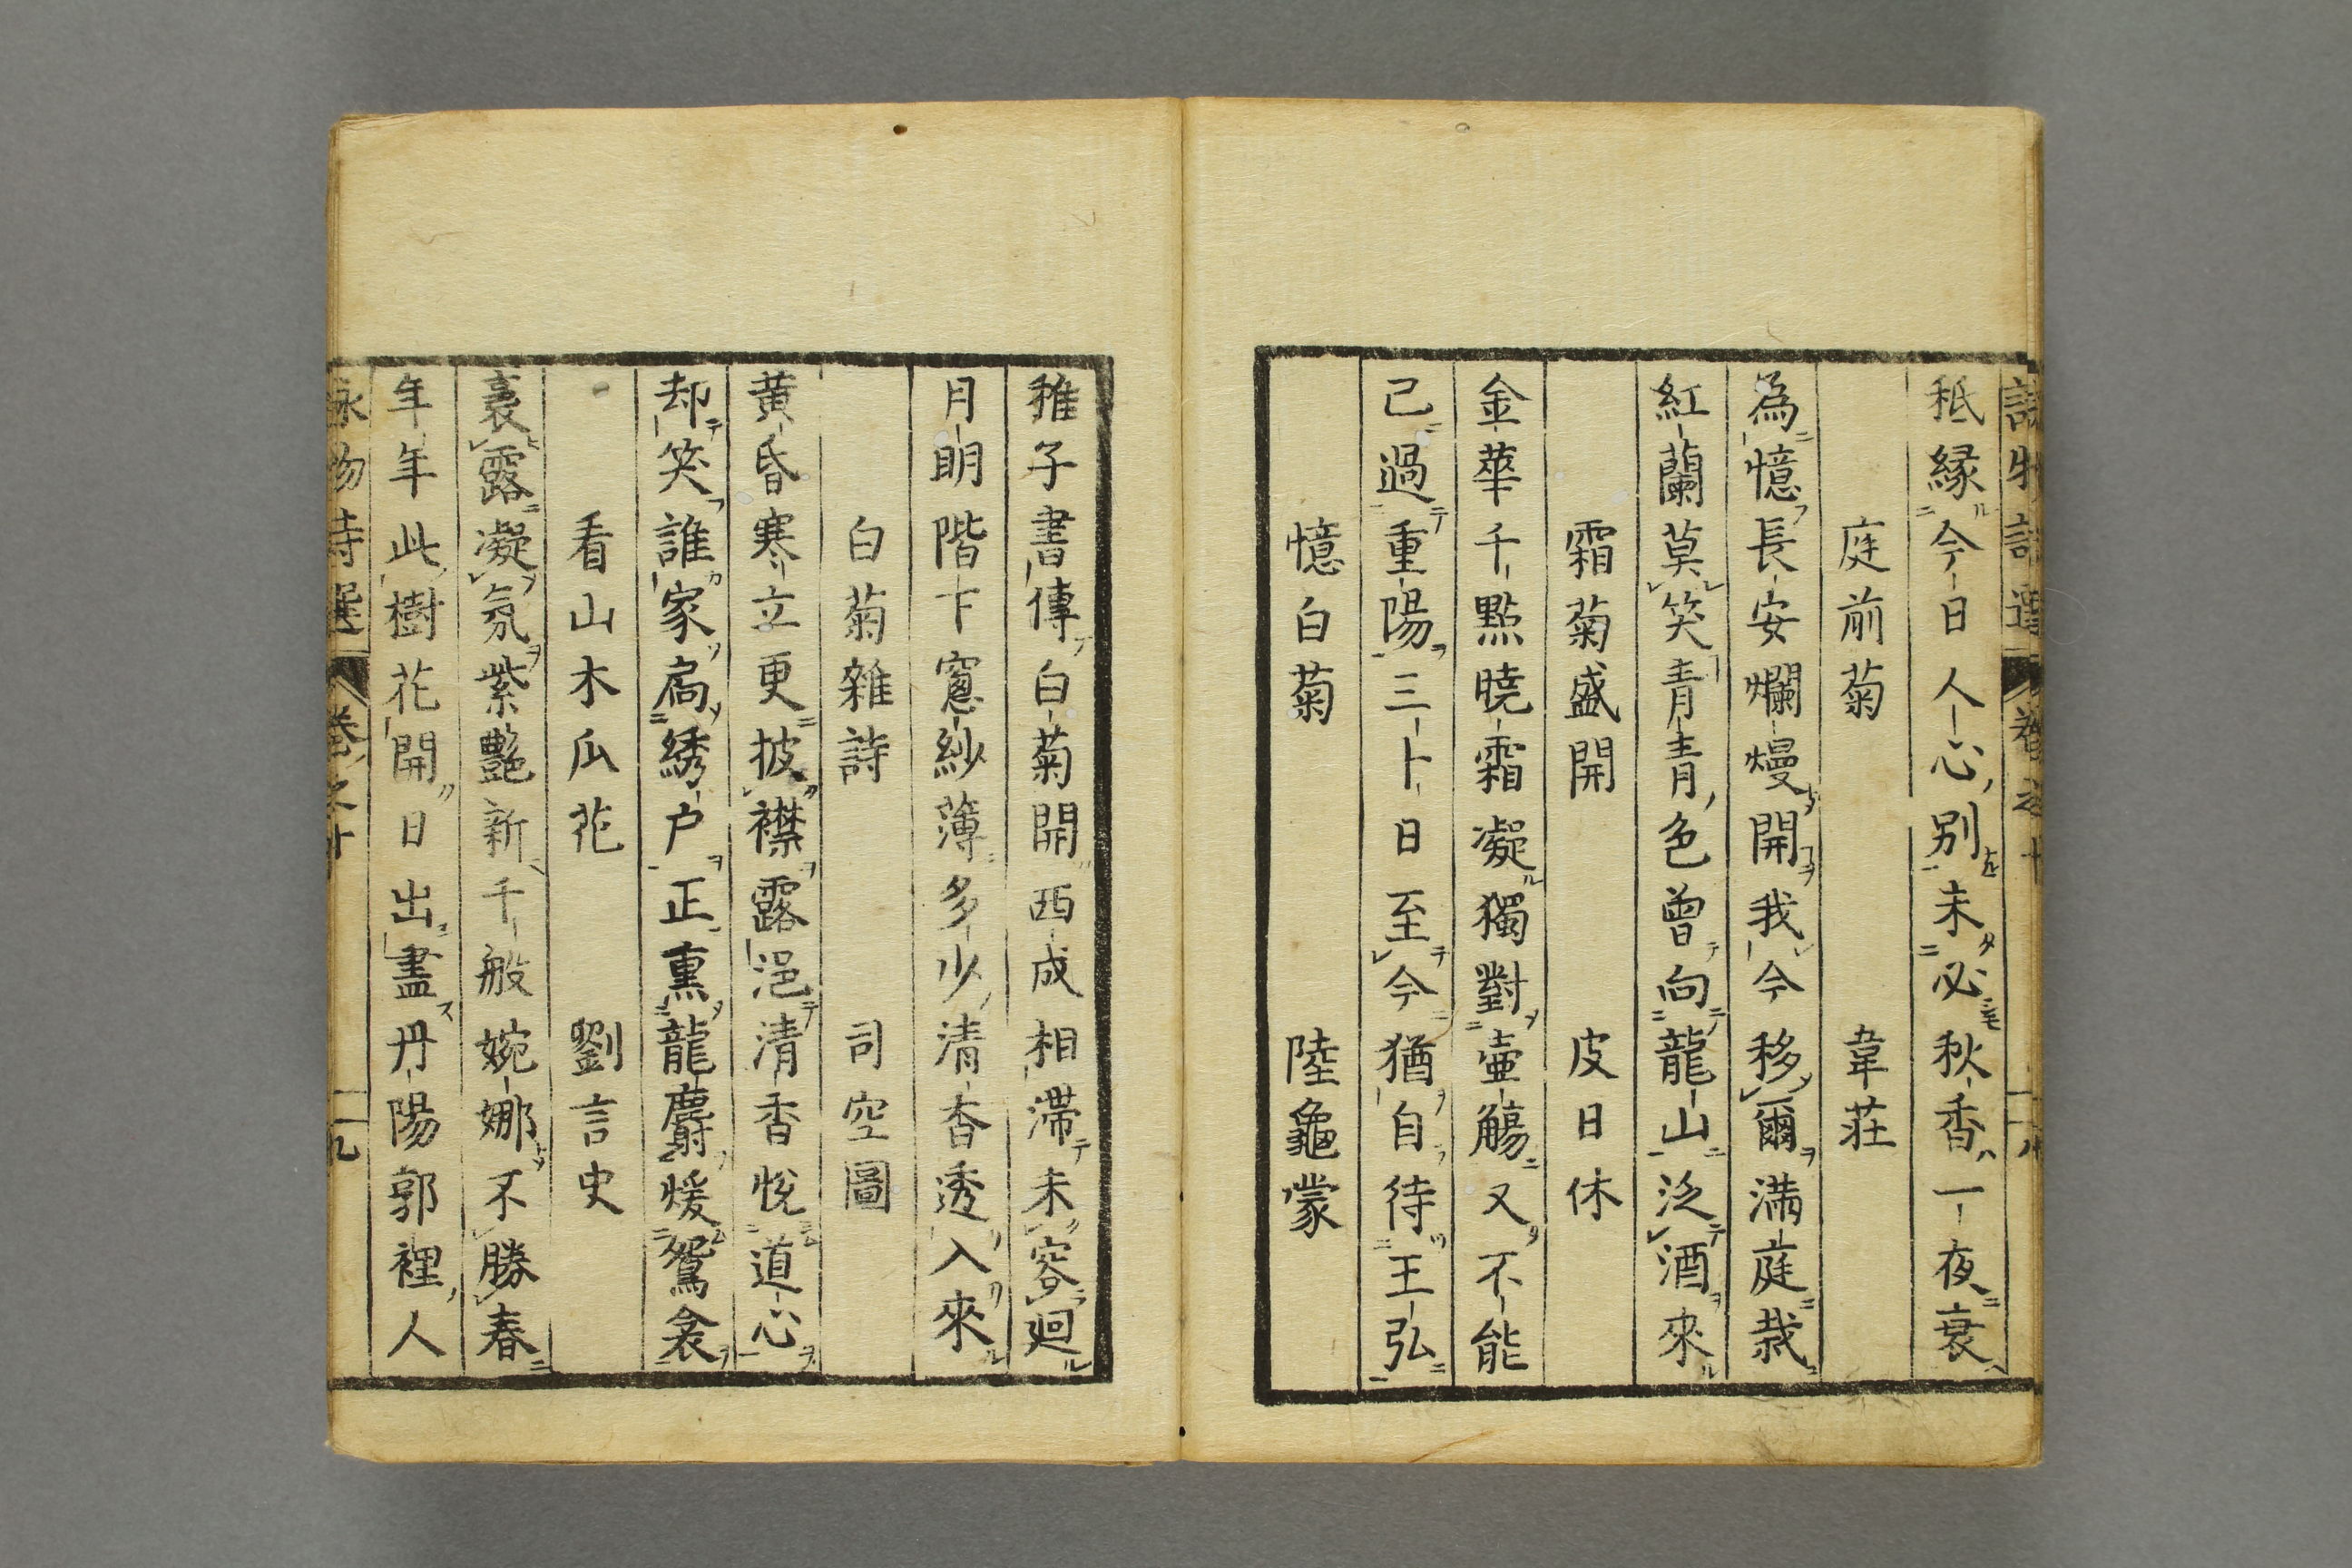 詠物詩選 卷之十 十八
秪緣今日人心別未必秋香一夜衰
庭前菊 韋莊
為憶長安爛熳開我今移爾滿庭栽
紅蘭莫笑青青色曾向龍山泛酒來
霜菊盛開 皮日休
金華千點曉霜凝獨對壺觴又不能
已過重陽三十日至今猶自待王弘
憶白菊 陸龜蒙
稚子書傳白菊開西成相滯未容迴
月明階下窻紗薄多少清香透入來
白菊雜詩 司空圖
黃昏寒立更披襟露浥清香悅道心
却笑誰家扃綉戶正熏龍麝煖鴛衾
看山木瓜花 劉言史
裛露凝氛紫艷新千般婉娜不勝春
年年此樹花開日出盡丹陽郭裡人
詠物詩選 卷之十 十九